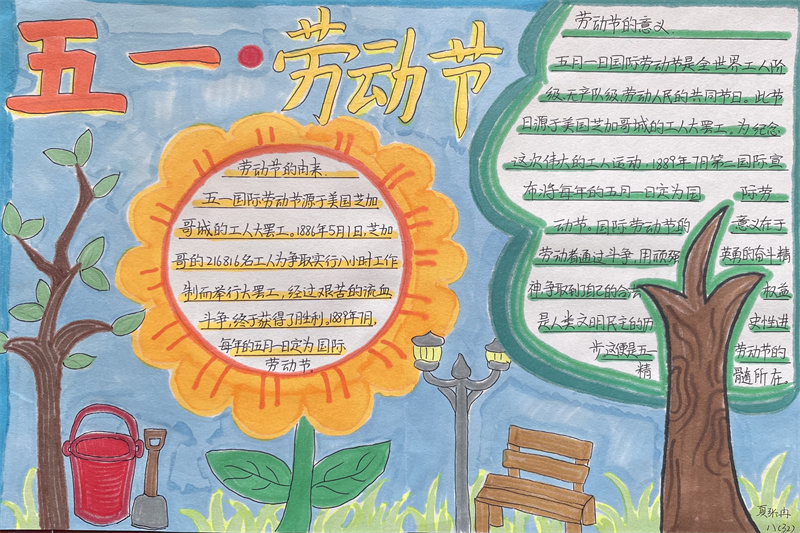 五一·劳动节
劳动节的由来
五一国际劳动节源于美国芝加
哥城的工人大罢工。1886年5月1日,芝加
哥的216816名工人为争取实行八小时工作
制而举行大罢工,经过艰苦的流血
斗争,终于获得了胜利。1889年7月,
每年的五月一日定为国际
劳动节。
劳动节的意义
五月一日国际劳动节是全世界工人阶
级,无产队级,劳动人民的共同节日。此节
日源于美国芝加哥城的工人大罢工,为纪念
这次伟大的工人运动,1889年7月第二国际宣
布将每年的五月一日定为国 际劳
动节。国际劳动节的 意义在于
劳动者通过斗争,用顽强 英勇的奋斗精
神争取到了自己的合法 权益
是人类文明民主的历 史性进
步,这便是五一 劳动节的
精 髓所在。
八(32)